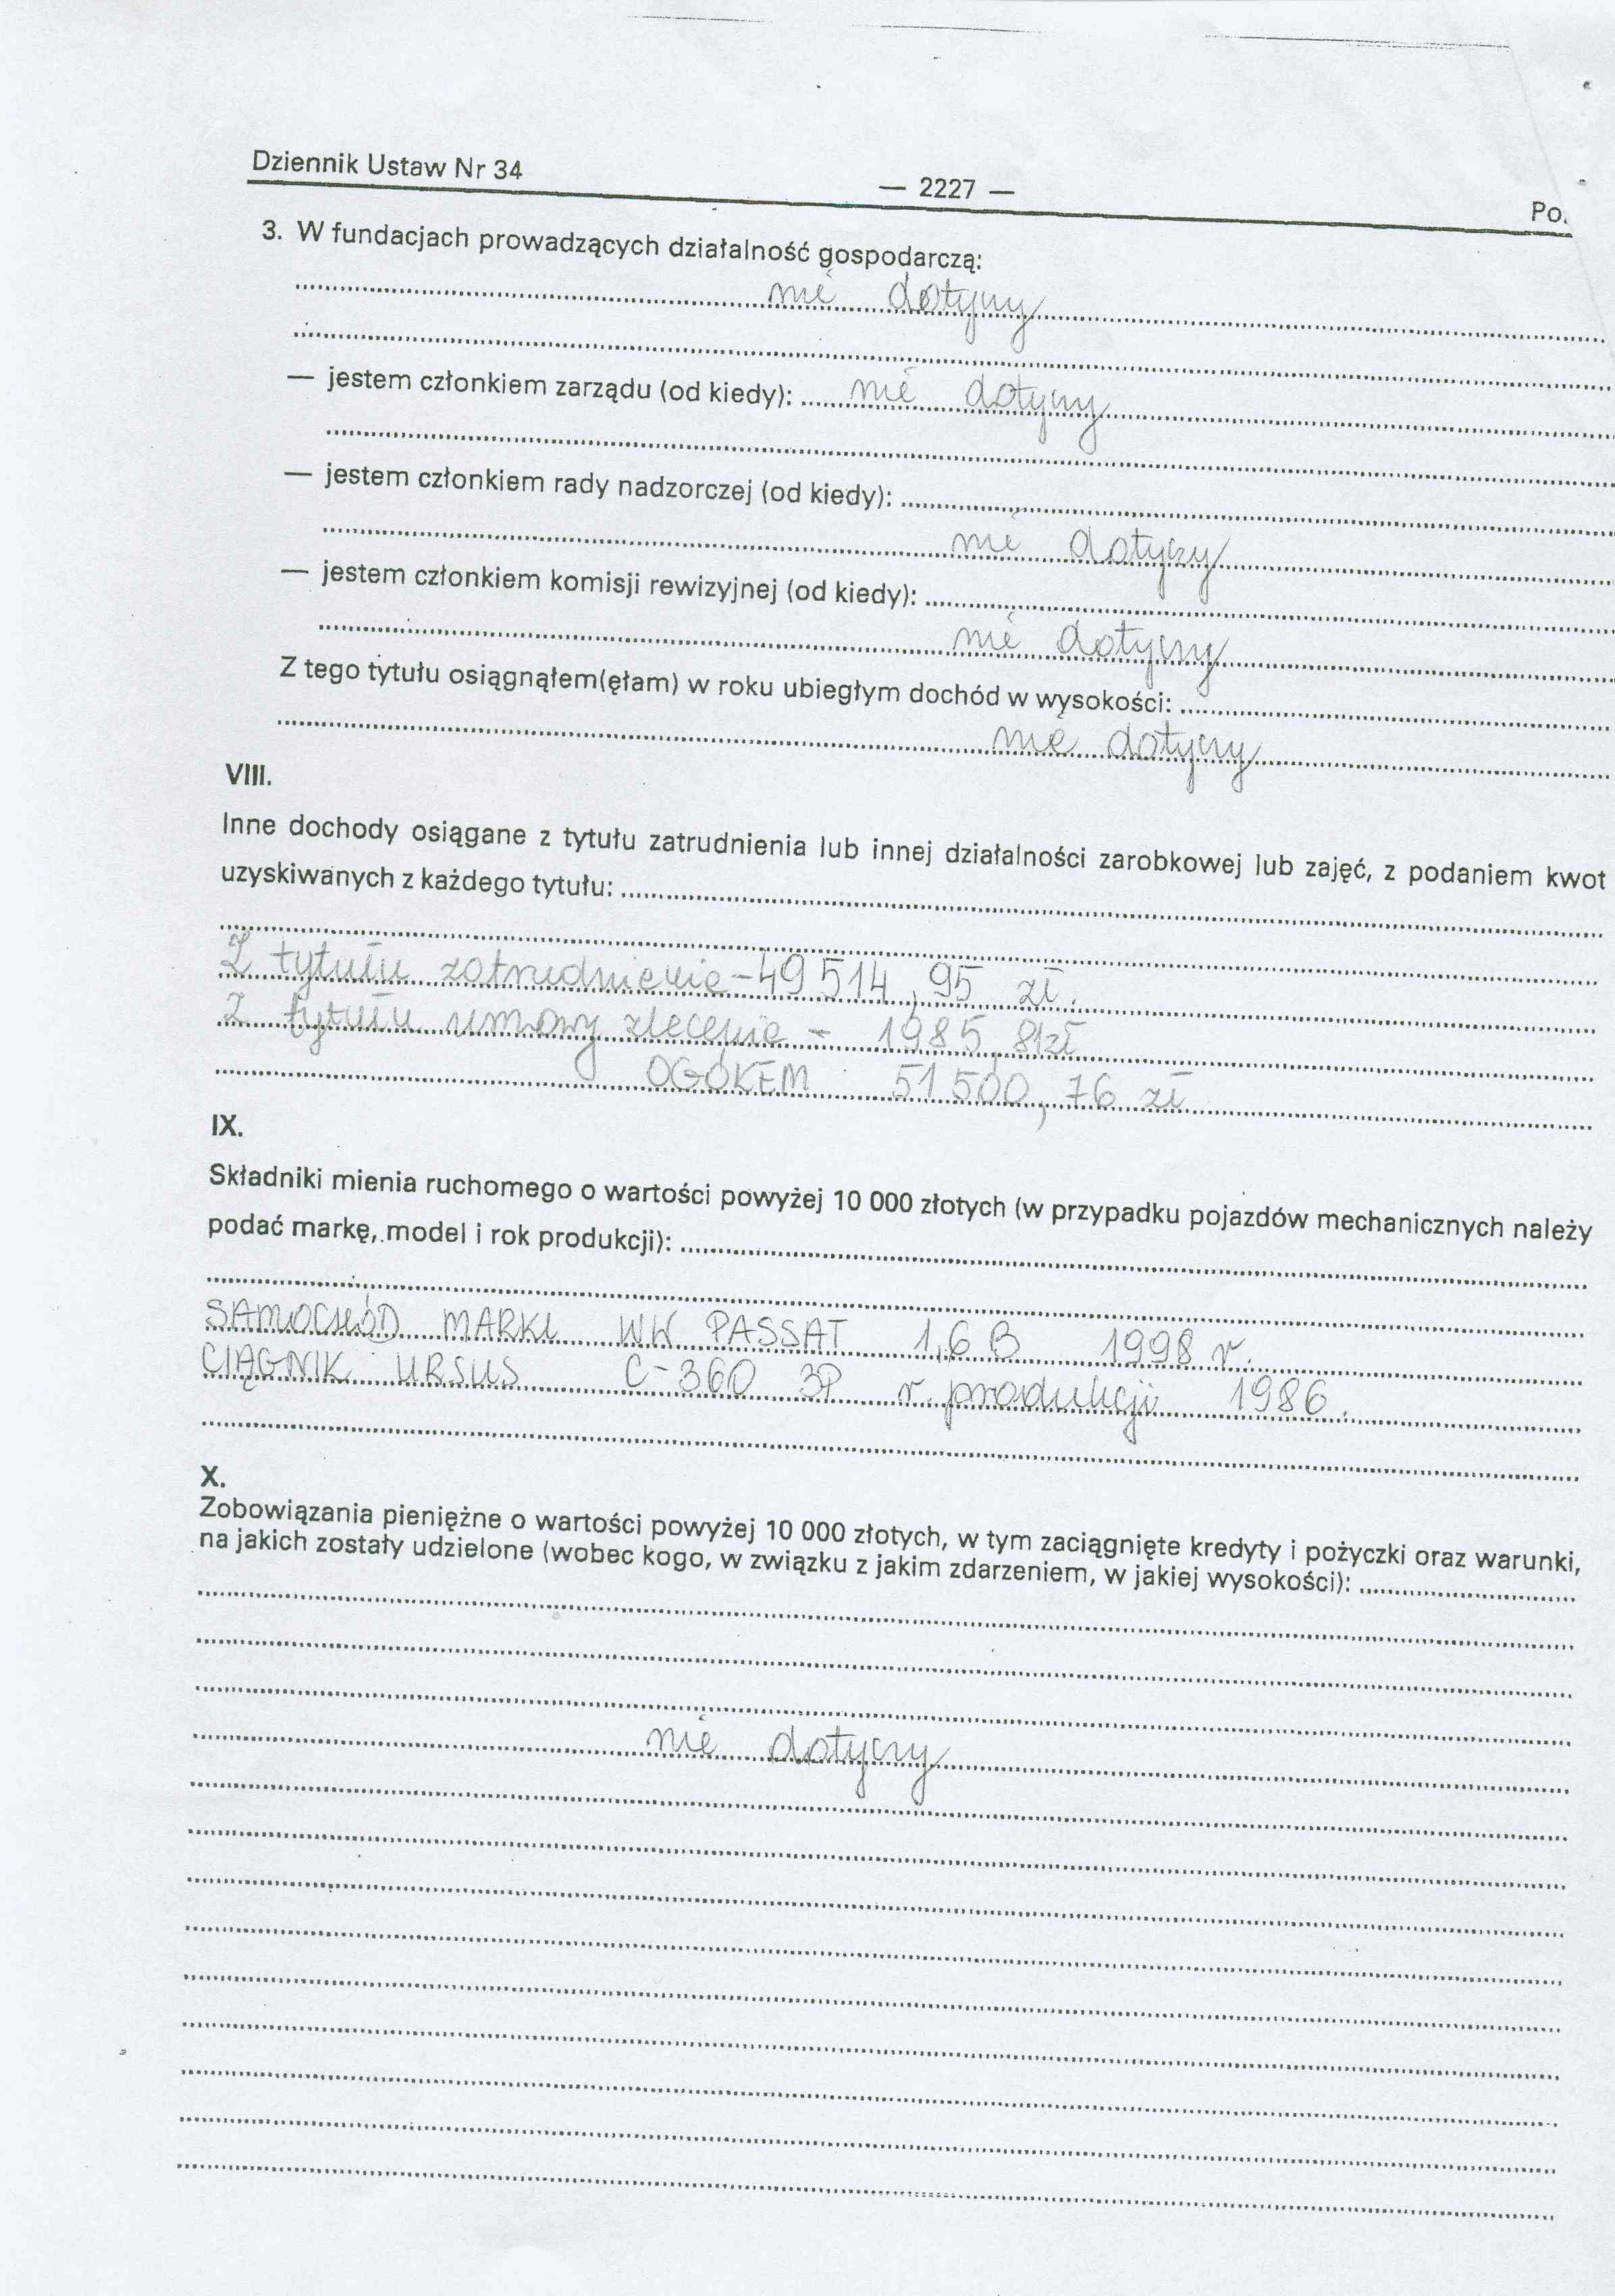 Dziennik Ustaw Nr 34
— 2227 —
Po.
3. W fundacjach prowadzących działalność gospodarczą:
nie dotyczy
— jestem członkiem zarządu (od kiedy): nie dotyczy
— jestem członkiem rady nadzorczej (od kiedy):
nie dotyczy
— jestem członkiem komisji rewizyjnej (od kiedy):
nie dotyczy
Z tego tytułu osiągnąłem(ęłam) w roku ubiegłym dochód w wysokości:
nie dotyczy
VIII.
Inne dochody osiągane z tytułu zatrudnienia lub innej działalności zarobkowej lub zajęć, z podaniem kwot
uzyskiwanych z każdego tytułu:
Z tytułu zatrudnienia - 49 514,95 zł.
Z tytułu umowy zlecenia - 1985,81 zł
OGÓŁEM 51 500,76 zł
IX.
Składniki mienia ruchomego o wartości powyżej 10 000 złotych (w przypadku pojazdów mechanicznych należy
podać markę, model i rok produkcji):
SAMOCHÓD MARKI WW PASSAT 1,6 B 1998 r.
CIĄGNIK URSUS C-360 3P r. produkcji 1986.
X.
Zobowiązania pieniężne o wartości powyżej 10 000 złotych, w tym zaciągnięte kredyty i pożyczki oraz warunki,
na jakich zostały udzielone (wobec kogo, w związku z jakim zdarzeniem, w jakiej wysokości):
nie dotyczy